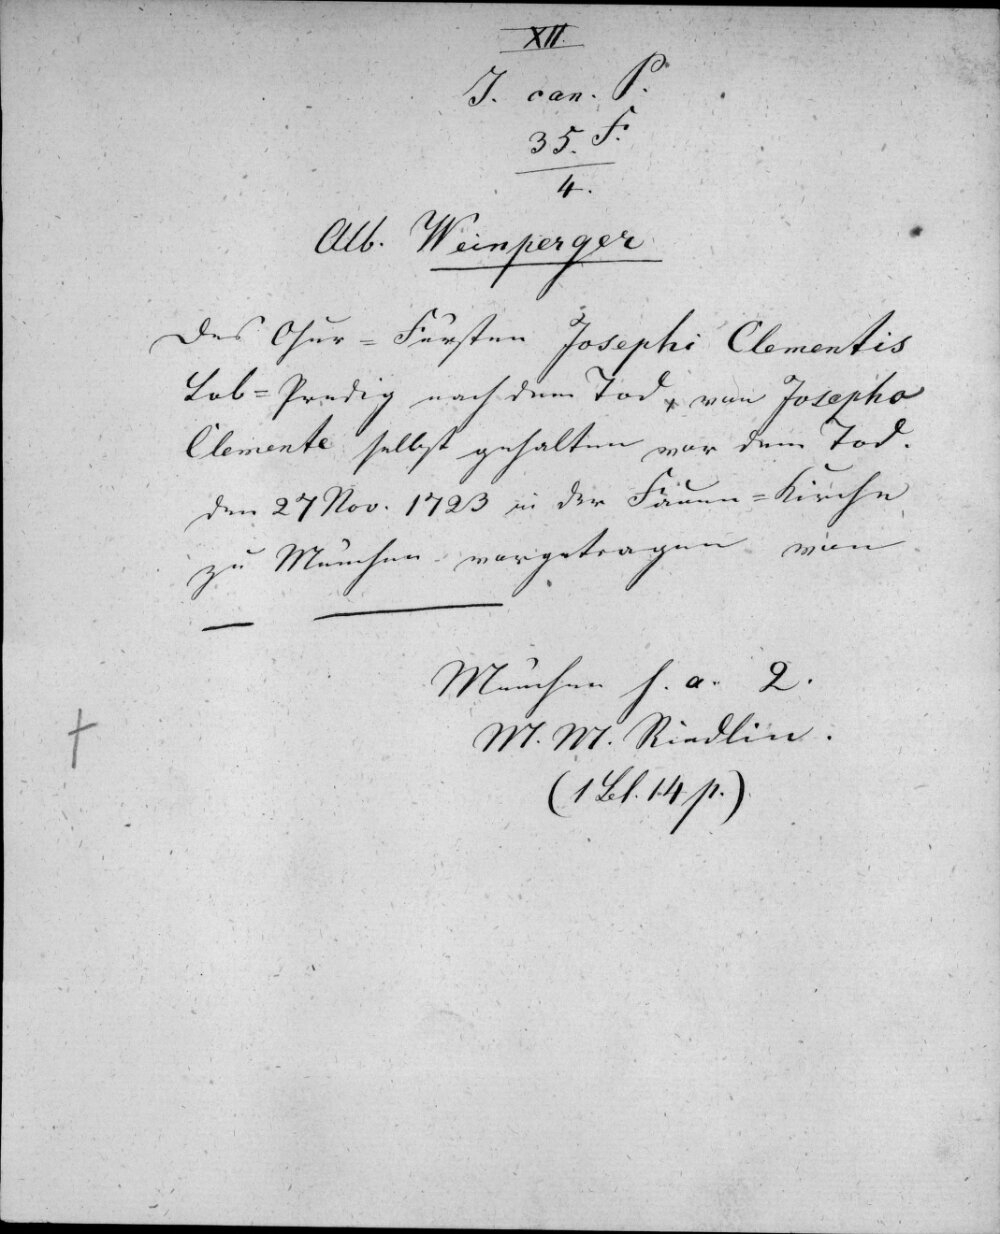 XII.
J. can. P.
35. F.
4.
Alb. Weinperger
Des Chur=Fürsten Josephi Clementis
Lob=Predig nach dem Tod, von Josepho
Clemente selbst gehalten vor dem Tod.
den 27 Nov. 1723 in der Fauen=Kirche
zu München vorgetragen von
München s. a. 2.
M. M. Riedlin.
(1 Bl. 14 p.)